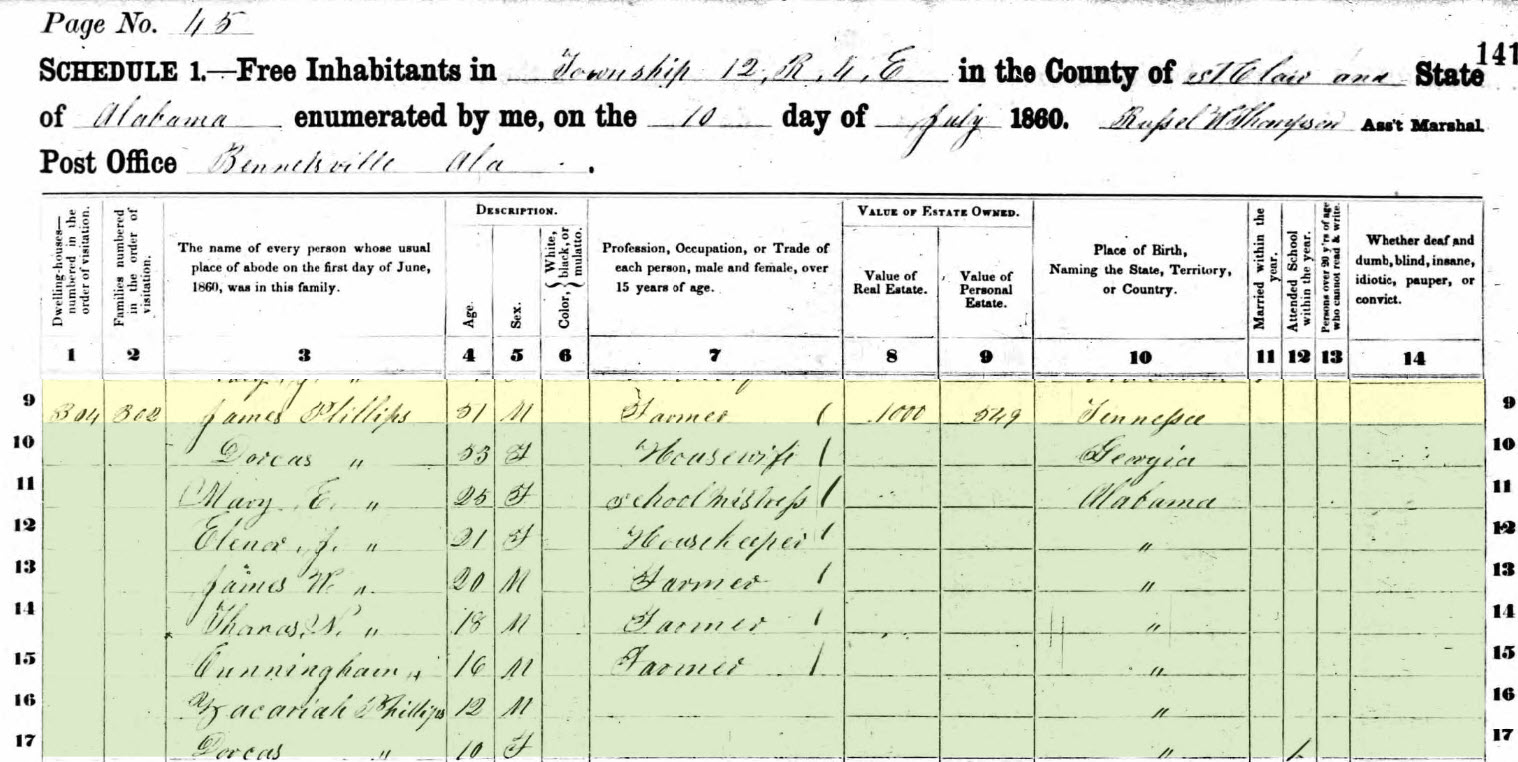 Page No. 45
141
SCHEDULE 1.—Free Inhabitants in Township 12, R. 4, E in the County of St Clair and State
of Alabama enumerated by me, on the 10 day of July 1860. Russel W Thompson Ass't Marshal.
Post Office Bennetsville Ala .
Dwelling-houses—numbered in the order of visitation.
Families numbered in the order of visitation.
The name of every person whose usual place of abode on the first day of June, 1860, was in this family.
DESCRIPTION.
Age.
Sex.
Color, { White, black, or mulatto.
Profession, Occupation, or Trade of each person, male and female, over 15 years of age.
VALUE OF ESTATE OWNED.
Value of Real Estate.
Value of Personal Estate.
Place of Birth, Naming the State, Territory, or Country.
Married within the year.
Attended School within the year.
Persons over 20 y'rs of age who cannot read & write.
Whether deaf and dumb, blind, insane, idiotic, pauper, or convict.
1 2 3 4 5 6 7 8 9 10 11 12 13 14
9 304 302 James Phillips 51 M Farmer 1 1000 549 Tennessee 9
10 Dorcas " 53 F Housewife 1 Georgia 10
11 Mary E. " 25 F School Mistress 1 Alabama 11
12 Elenor J. " 21 F Housekeeper 1 " 12
13 James W. " 20 M Farmer 1 " 13
14 N. " 18 M Farmer 1 " 14
15 Cunningham " 16 M Farmer 1 " 15
16 Zacariah Phillips 12 M " 16
17 Dorcas " 10 F " 1 17